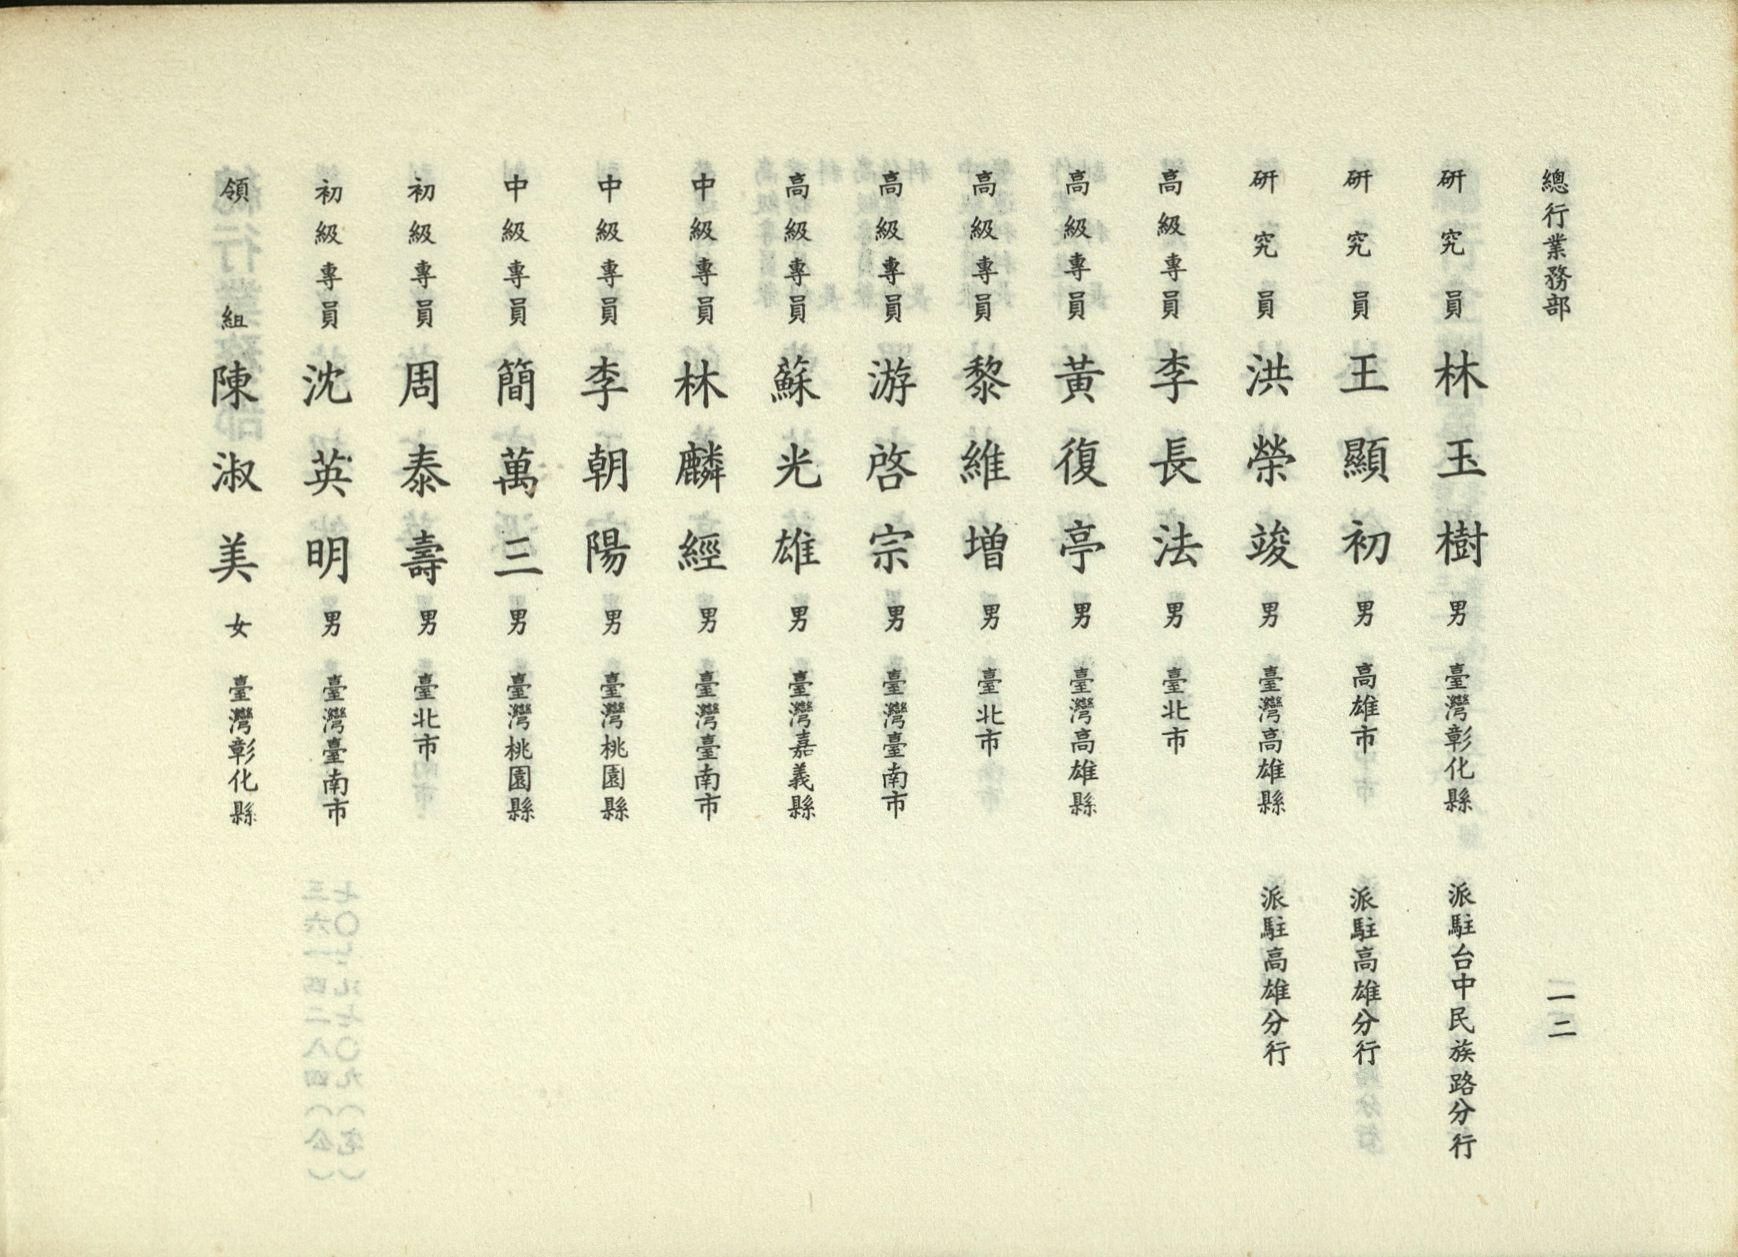 總行業務部
一二
研究員 林玉樹 男 臺灣彰化縣 派駐台中民族路分行
研究員 王顯初 男 高雄市 派駐高雄分行
研究員 洪榮竣 男 臺灣高雄縣 派駐高雄分行
高級專員 李長法 男 臺北市
高級專員 黃復亭 男 臺灣高雄縣
高級專員 黎維增 男 臺北市
高級專員 游啓宗 男 臺灣臺南市
高級專員 蘇光雄 男 臺灣嘉義縣
中級專員 林麟經 男 臺灣臺南市
中級專員 李朝陽 男 臺灣桃園縣
中級專員 簡萬三 男 臺灣桃園縣
初級專員 周泰壽 男 臺北市
初級專員 沈英明 男 臺灣臺南市
領組 陳淑美 女 臺灣彰化縣